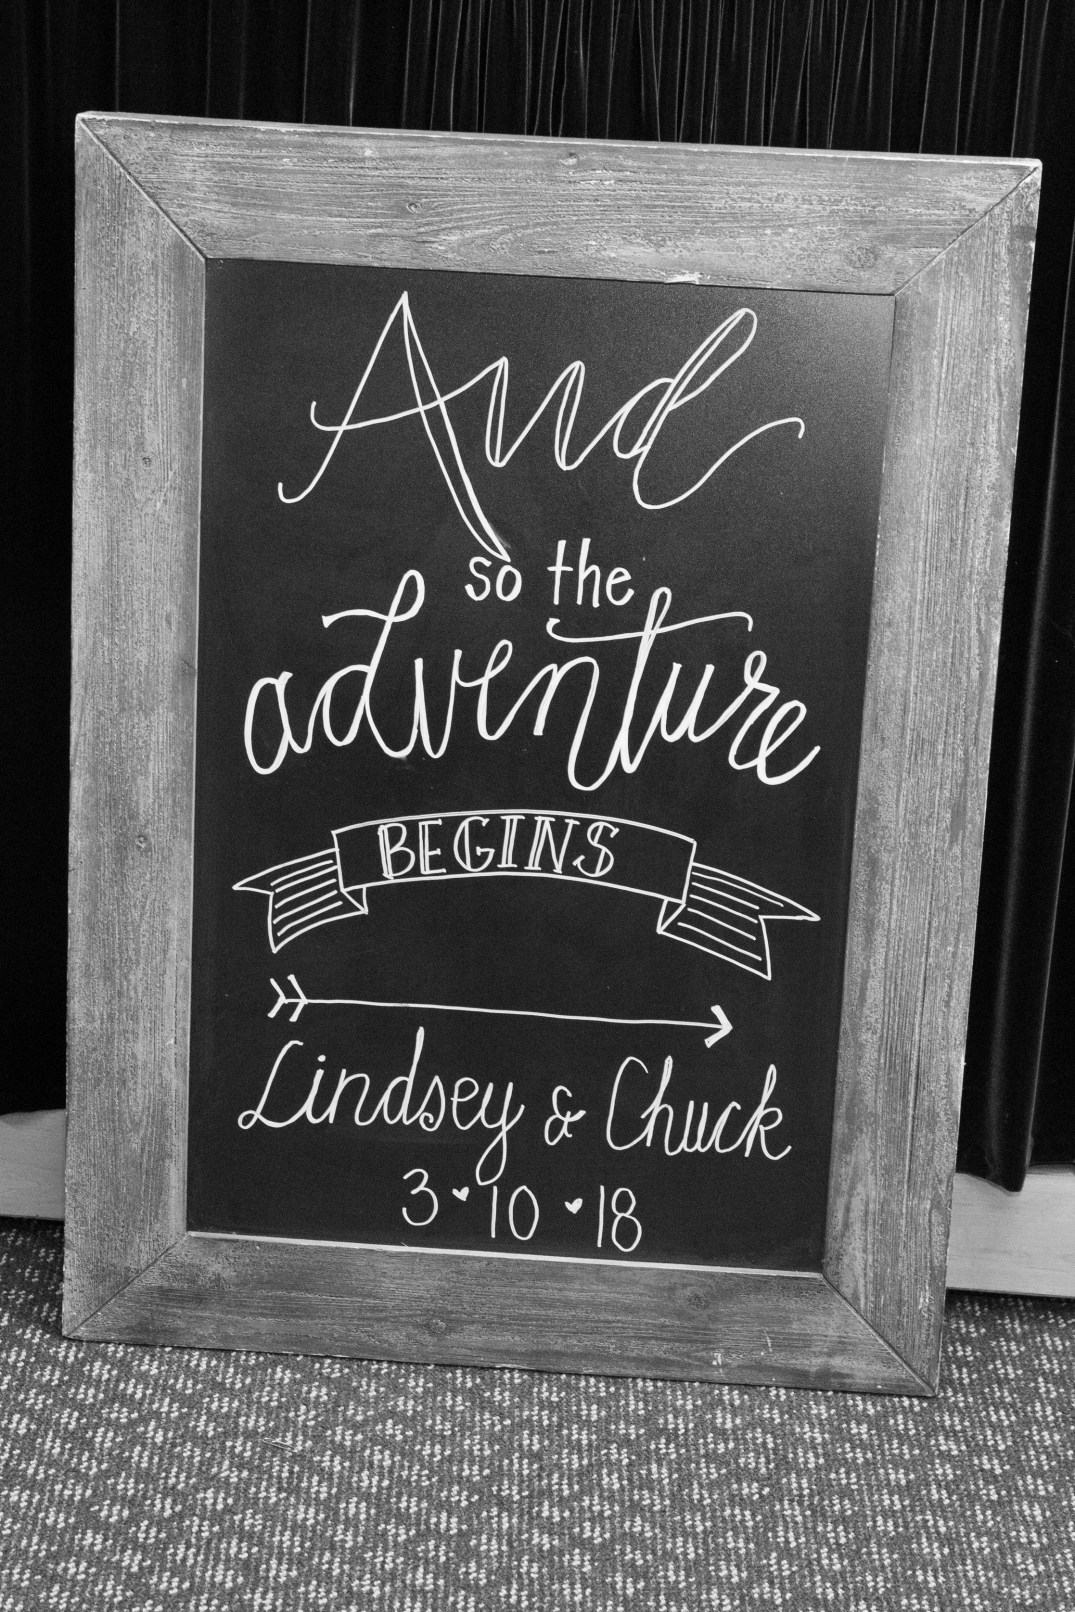 And
so the
adventure
BEGINS
Lindsey & Chuck
3 ♥ 10 ♥ 18